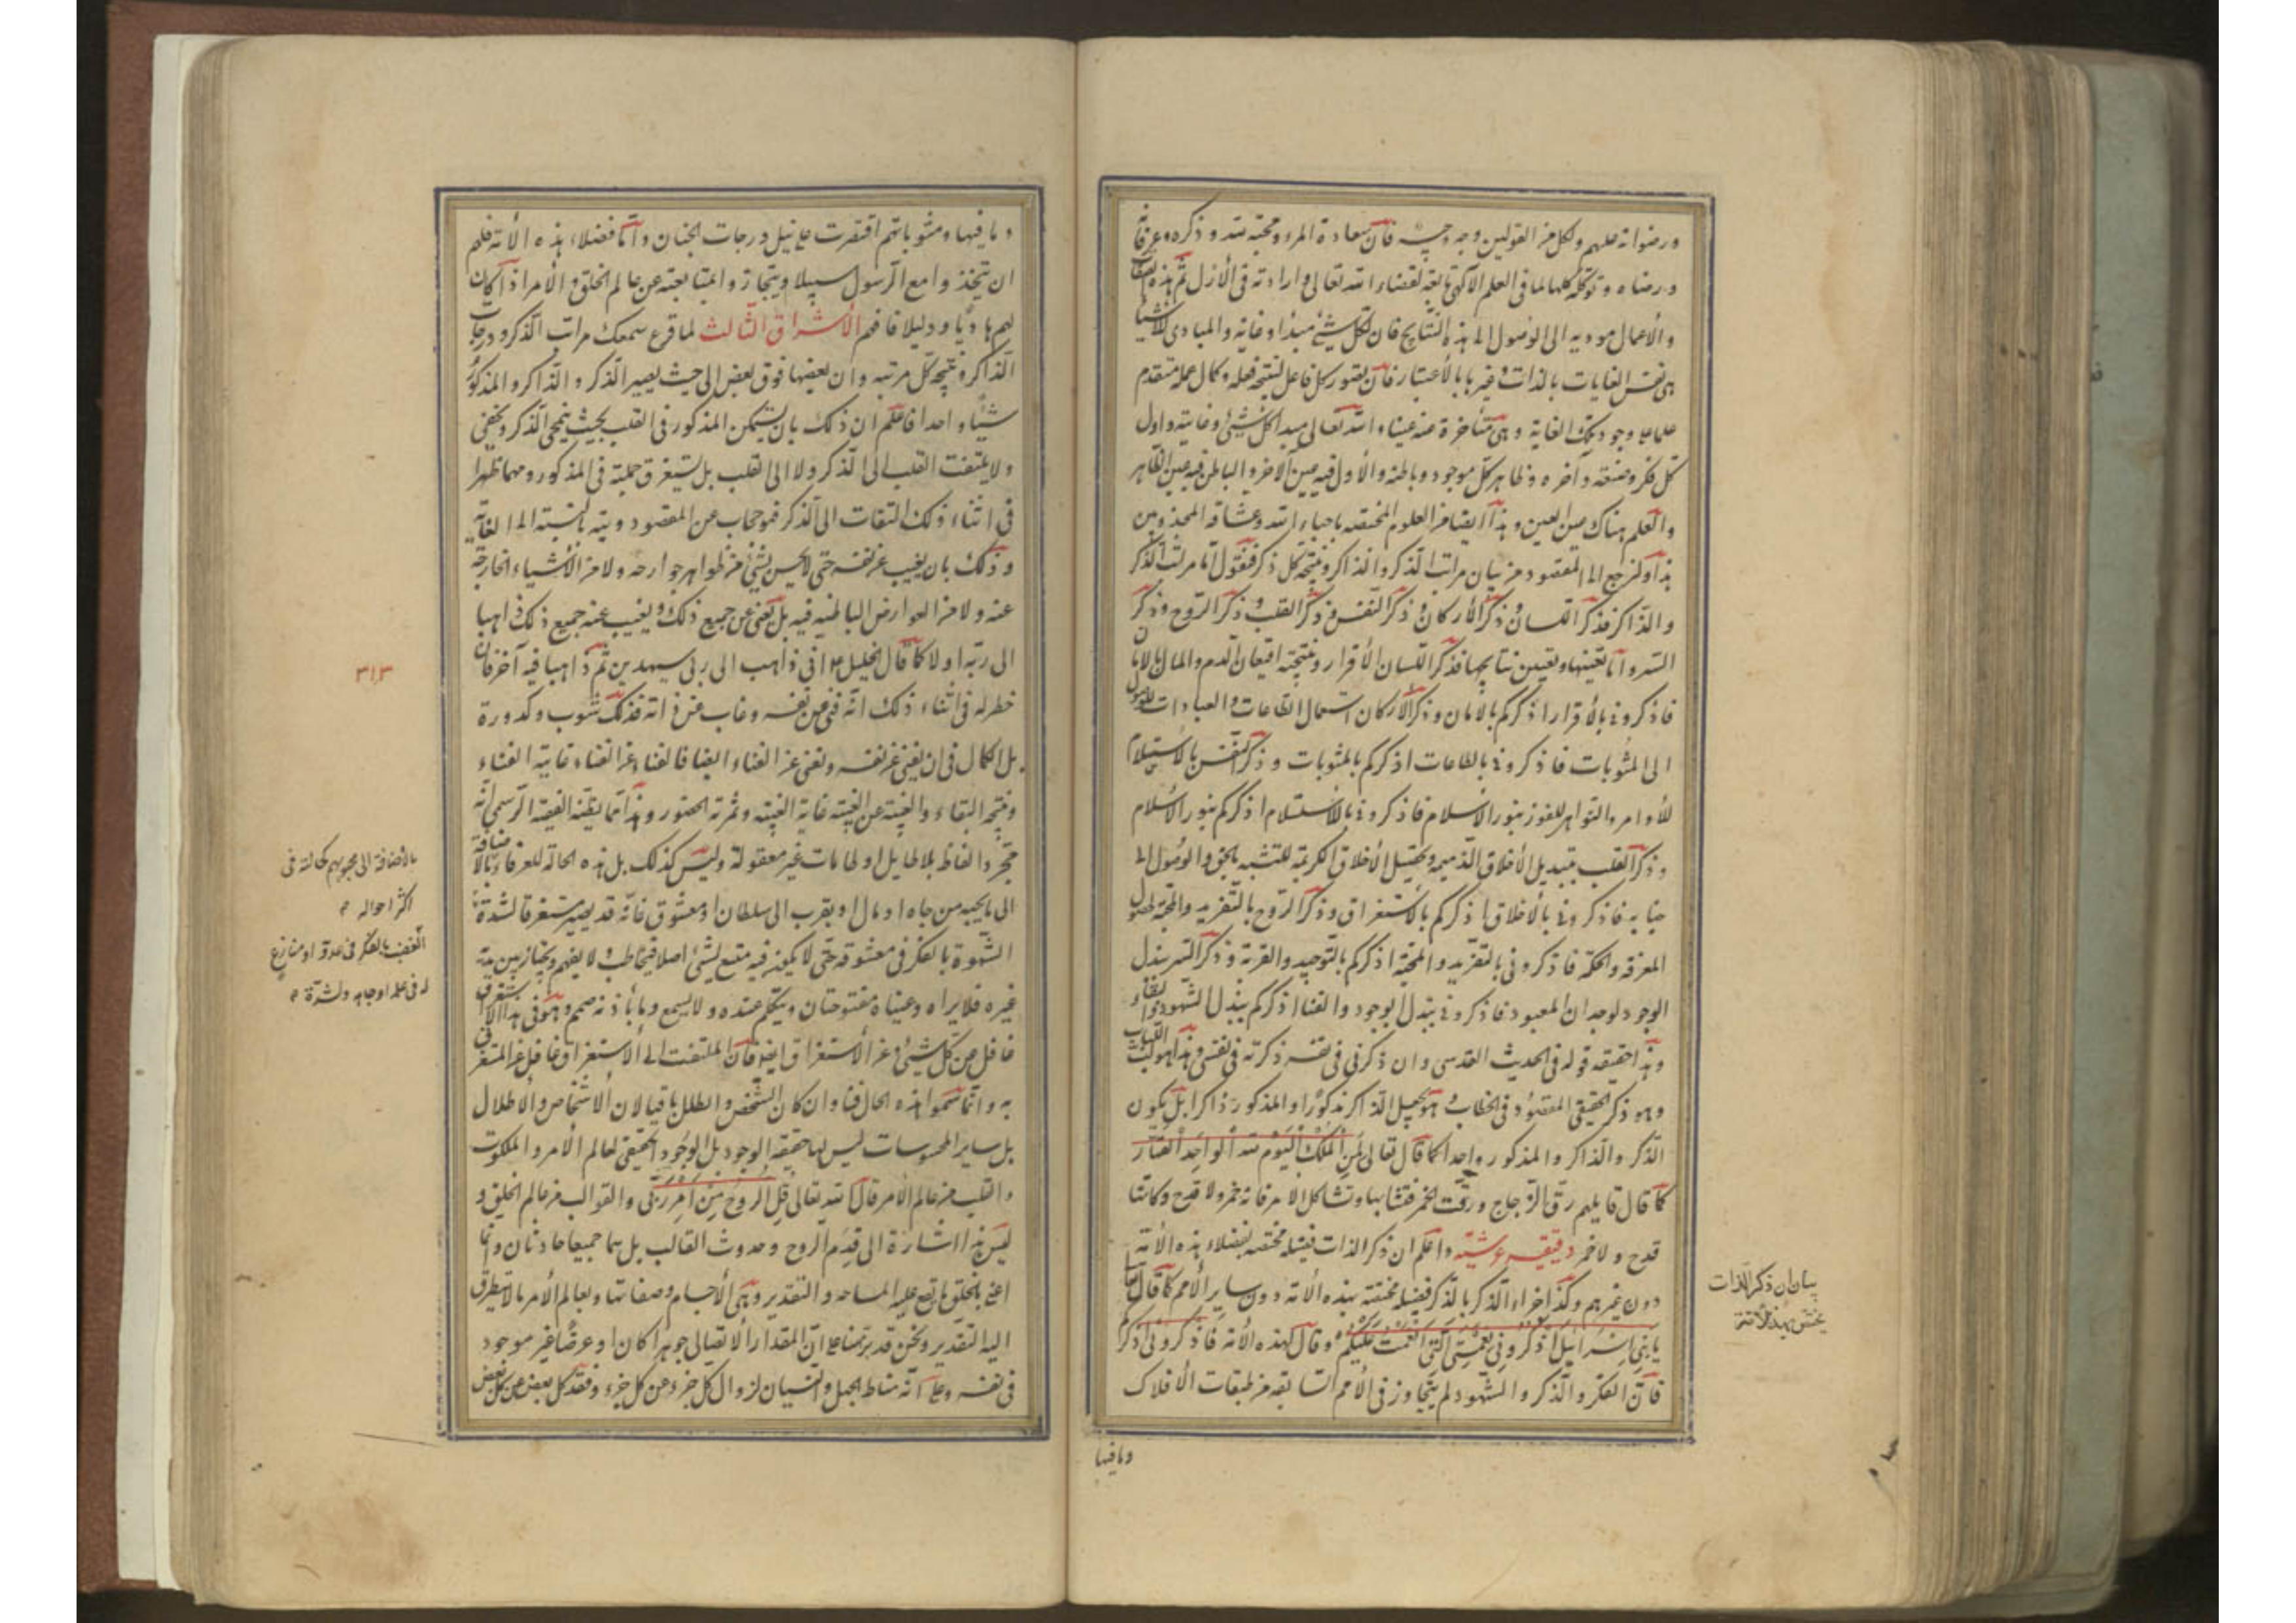 ورضوانه عليهم ولكل من القولين وجه وجيه فان سعادة المرء ومحبته لله وذكره وعرفانه
ورضاه وتوكله كلها لما فى العلم الآلهى تابعة لقضاء الله تعالى وارادته فى الأزل ثم هذه الصفات
والأعمال موديه الى الوصول الى هذه النتايج فان لكل شىء مبدا وغاية والمبادى للأشيا
هى نفس الغايات بالذات وغيرها بالأعتبار فان تصور كل فاعل لنتيجة فعله وكمال عمله متقدم
على وجود تلك الغاية وهى متأخرة عنه عينا والله تعالى مبدا كل شىء وغايته واول
كل فكر وصنعته وآخره وظاهر كل موجود وباطنه والأول فيه عين الآخر والباطن فيه عين الظاهر
والعلم هناك عين العين وهذا ايضا من العلوم المختصه باحباء الله وعشاقه المجذوبين
هذا ولنرجع الى المقصود من بيان مراتب الذكر والذاكر ونتيجة كل ذكر فنقول اما مراتب الذكر
والذاكر فذكر اللسان وذكر الأركان وذكر النفس وذكر القلب وذكر الروح وذكر
السر واما تعينها وتعيين نتايجها فذكر اللسان الأقرار ونتيجته احقان الدم والمال بالامان
فاذكرونى بالأقرار اذكركم بالامان وذكر الأركان استعمال الطاعات والعبادات للوصول
الى المثوبات فاذكرونى بالطاعات اذكركم بالمثوبات وذكر النفس بالاستسلام
للأوامر والنواهى للفوز بنور الاسلام فاذكرونى بالاستسلام اذكركم بنور الأسلام
وذكر القلب بتبديل الأخلاق الذميمه وتحصيل الأخلاق الكريمة للتشبه بالحق والوصول الى
جنابه فاذكرونى بالأخلاق اذكركم بالأستغراق وذكر الروح بالتفريد والمحبة لحصول
المعرفة والحكمة فاذكرونى بالتفريد والمحبة اذكركم بالتوحيد والقربة وذكر السر ببذل
الوجود لوجدان المعبود فاذكرونى ببذل الوجود والفنا اذكركم ببذل الشهود والبقاء
وهذا حقيقة قوله فى الحديث القدسى وان ذكرنى فى نفسه ذكرته فى نفسى وهذا هو لب اللباب
وهو ذكر الحقيقى المقصود فى الخطاب وهو بجعل الذاكر مذكورا والمذكور ذاكرا بل يكون
الذكر والذاكر والمذكور واحدا كما قال تعالى لمن الملك اليوم لله الواحد القهار
كما قال قايلهم رق الزجاج ورقت الخمر فتشابها وتشاكل الامر فكانه خمر ولا قدح وكانما
قدح ولا خمر دقيقه عرشيه واعلم ان ذكر الذات فضيلة مختصه بفضلاء هذه الأمة
دون غيرهم وكذا جزاء الذكر بالذكر فضيلة مختصة بهذه الأمة دون ساير الأمم كما قال تعالى
يا بنى اسرائيل اذكروا نعمتى التى انعمت عليكم وقال لهذه الأمة فاذكرونى اذكركم
فان الفكر والذكر والشهود لم يتجاوز فى الأمم السابقه من طبقات الافلاك
وما فيها
بيان ان ذكر الذات
يختص بهذه الأمة
وما فيها ومثوباتهم اقتصرت على نيل درجات الجنان واما فضلاء هذه الأمة فلهم
ان يتخذوا مع الرسول سبيلا ويتجاوزوا بمتابعته عن عالم الخلق والأمر اذا كان
لهم هاديا ودليلا فافهم الأشراق الثالث لما قرع سمعك مراتب الذكر ودرجات
الذاكر ونتيجة كل مرتبه وان بعضها فوق بعض الى حيث يصير الذكر والذاكر والمذكور
شيئا واحدا فاعلم ان ذلك بان يتمكن المذكور فى القلب بحيث ينمحى الذكر ويخفى
ولا يلتفت القلب الى الذكر ولا الى القلب بل يستغرق جملته فى المذكور ومهما ظهر له
فى اثناء ذلك التفات الى الذكر فهو حجاب عن المقصود وبنيه بالنسبة الى الغاية
وذلك بان يغيب عن نفسه حتى لا يحس بشىء من ظواهر جوارحه ولا من الأشياء الخارجة
عنه ولا من العوارض الباطنيه فيه بل يفنى عن جميع ذلك ويغيب عنه جميع ذلك ذاهبا
الى ربه اولا كما قال الخليل ع انى ذاهب الى ربى سيهدين ثم ذاهبا فيه آخرا فان
خطر له فى اثناء ذلك انه فنى عن نفسه وغاب عن ذاته فذلك شوب وكدورة
بل الكمال فى ان يفنى عن نفسه ويفنى عن الفناء ايضا فالفناء عن الفناء غاية الفناء
ونتيجة البقاء والغيبة عن الغيبة غاية الغيبة وثمرته الحضور وهذا مما يظنه الفقيه الرسمى انه
مجرد الفاظ بلا طايل او طامات غير معقولة وليس كذلك بل هذه الحالة للعرفاء بالاضافة
الى ما يحبه من جاه او مال او يقرب الى سلطان او معشوق فانه قد يصير مستغرقا لشدة
الشهوة بالفكر فى معشوقه حتى لا يكون فيه متسع لشىء اصلا فيخاطب ولا يفهم ويجتاز بين يديه
غيره فلا يراه وعيناه مفتوحتان ويتكلم عنده ولا يسمع وما باذنه صمم وهو فى هذا الاستغراق
غافل عن كل شىء وعن الأستغراق ايضا فان الملتفت الى الاستغراق غافل عن المستغرق
به وانما سموا هذه الحال فناء وان كان الشخص والطلل باقيا لان الأشخاص والأطلال
بل ساير المحسوسات ليس لها حقيقة الوجود بل الوجود الحقيقى لعالم الأمر والملكوت
والقلب من عالم الأمر قال الله تعالى قل الروح من امر ربى والقوالب من عالم الخلق و
ليس هذا اشارة الى قدم الروح وحدوث القالب بل هما جميعا حادثان وانما
اعنى بالخلق ما يقع عليه المساحه والتقدير وهى الأجسام وصفاتها وبعالم الأمر ما لا يتطرق
اليه التقدير ونحن قد برهنا على ان المقدار الاتصالى جوهرا كان او عرضا غير موجود
فى نفسه وعلى انه مناط الجهل والنسيان لزوال كل جزء عن كل جزء وفقد كل بعض عن كل بعض
٣١٣
بالأضافة الى محبوبهم كحالته فى
اكثر احواله
الغضب بالفكر فى عدو او منازع
له فى علم او جاه ولشدة